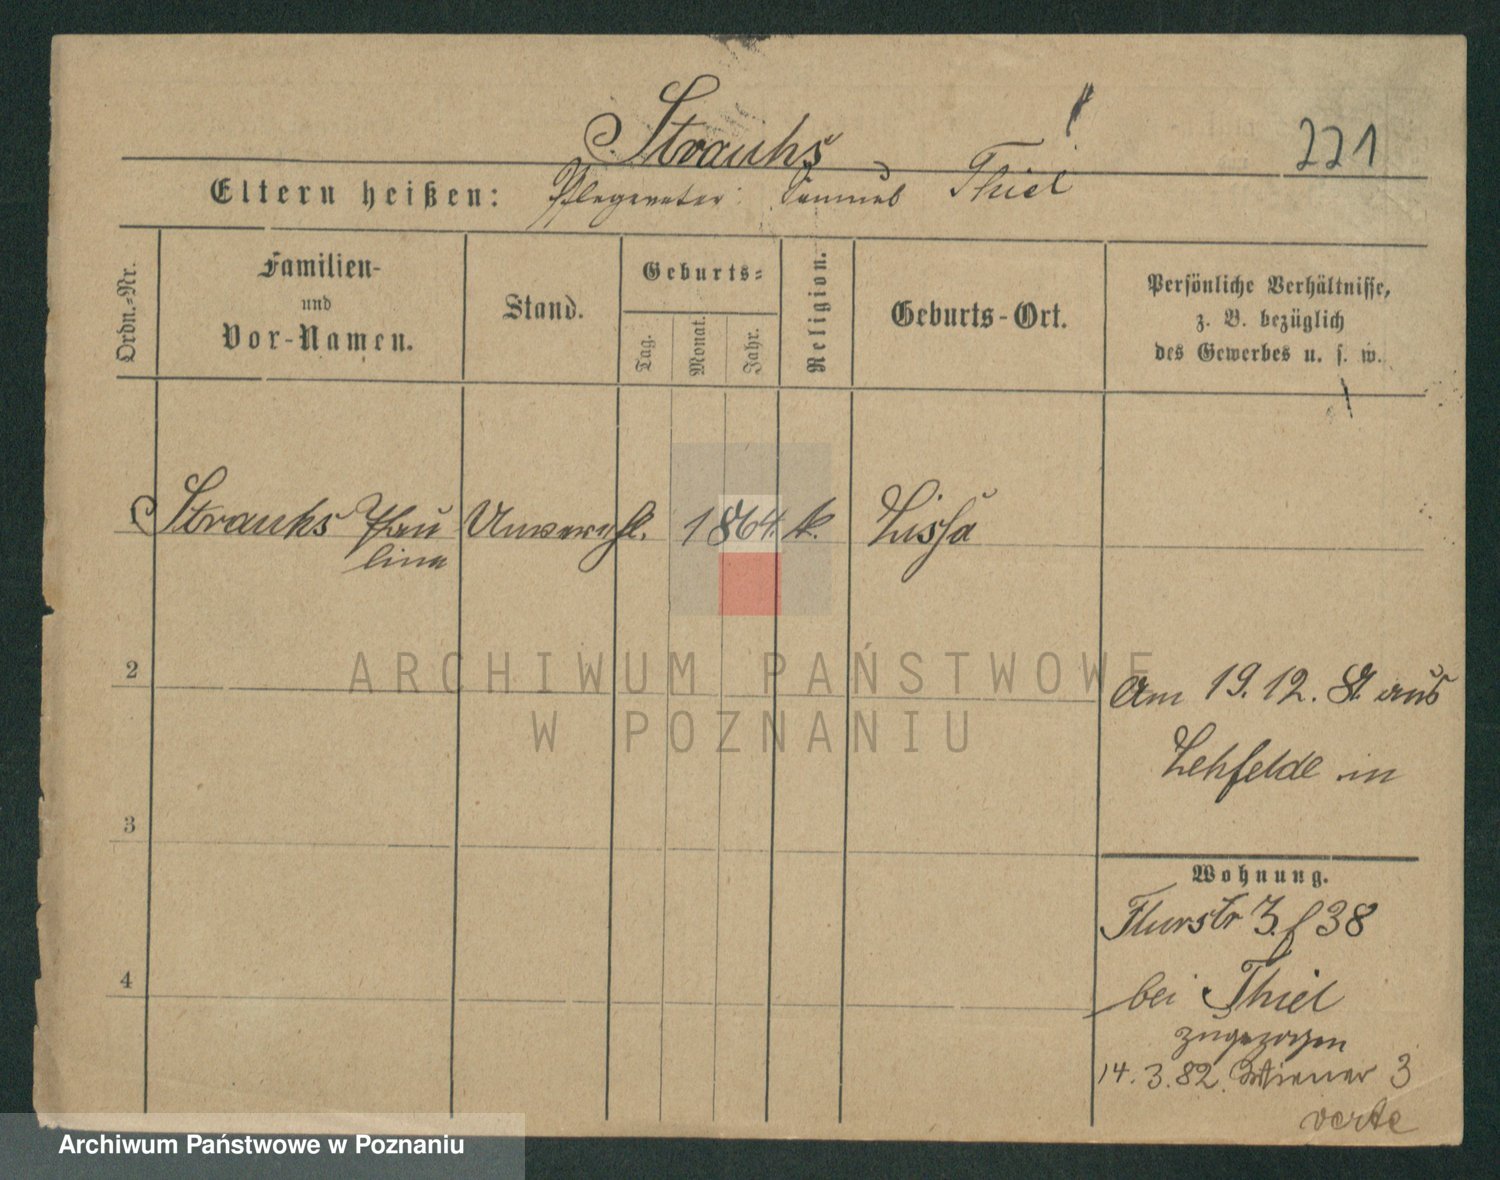 Strauhs
221
Eltern heißen: Pflegevater: Samuel Thiel
Ordn.-Nr.
Familien-
und
Vor-Namen.
Stand.
Geburts-
Tag.
Monat.
Jahr.
Religion.
Geburts-Ort.
Persönliche Verhältnisse,
z. B. bezüglich
des Gewerbes u. s. w.
Strauhs Pau
lina
Unverehl.
1864.
k.
Lissa
2
Am 19. 12. 81. aus
Lehfelde in
3
Wohnung.
Flurstr 3. f 38
4
bei Thiel
zugezogen
14. 3. 82. Wiener 3
verte
ARCHIWUM PAŃSTWOWE
W POZNANIU
Archiwum Państwowe w Poznaniu